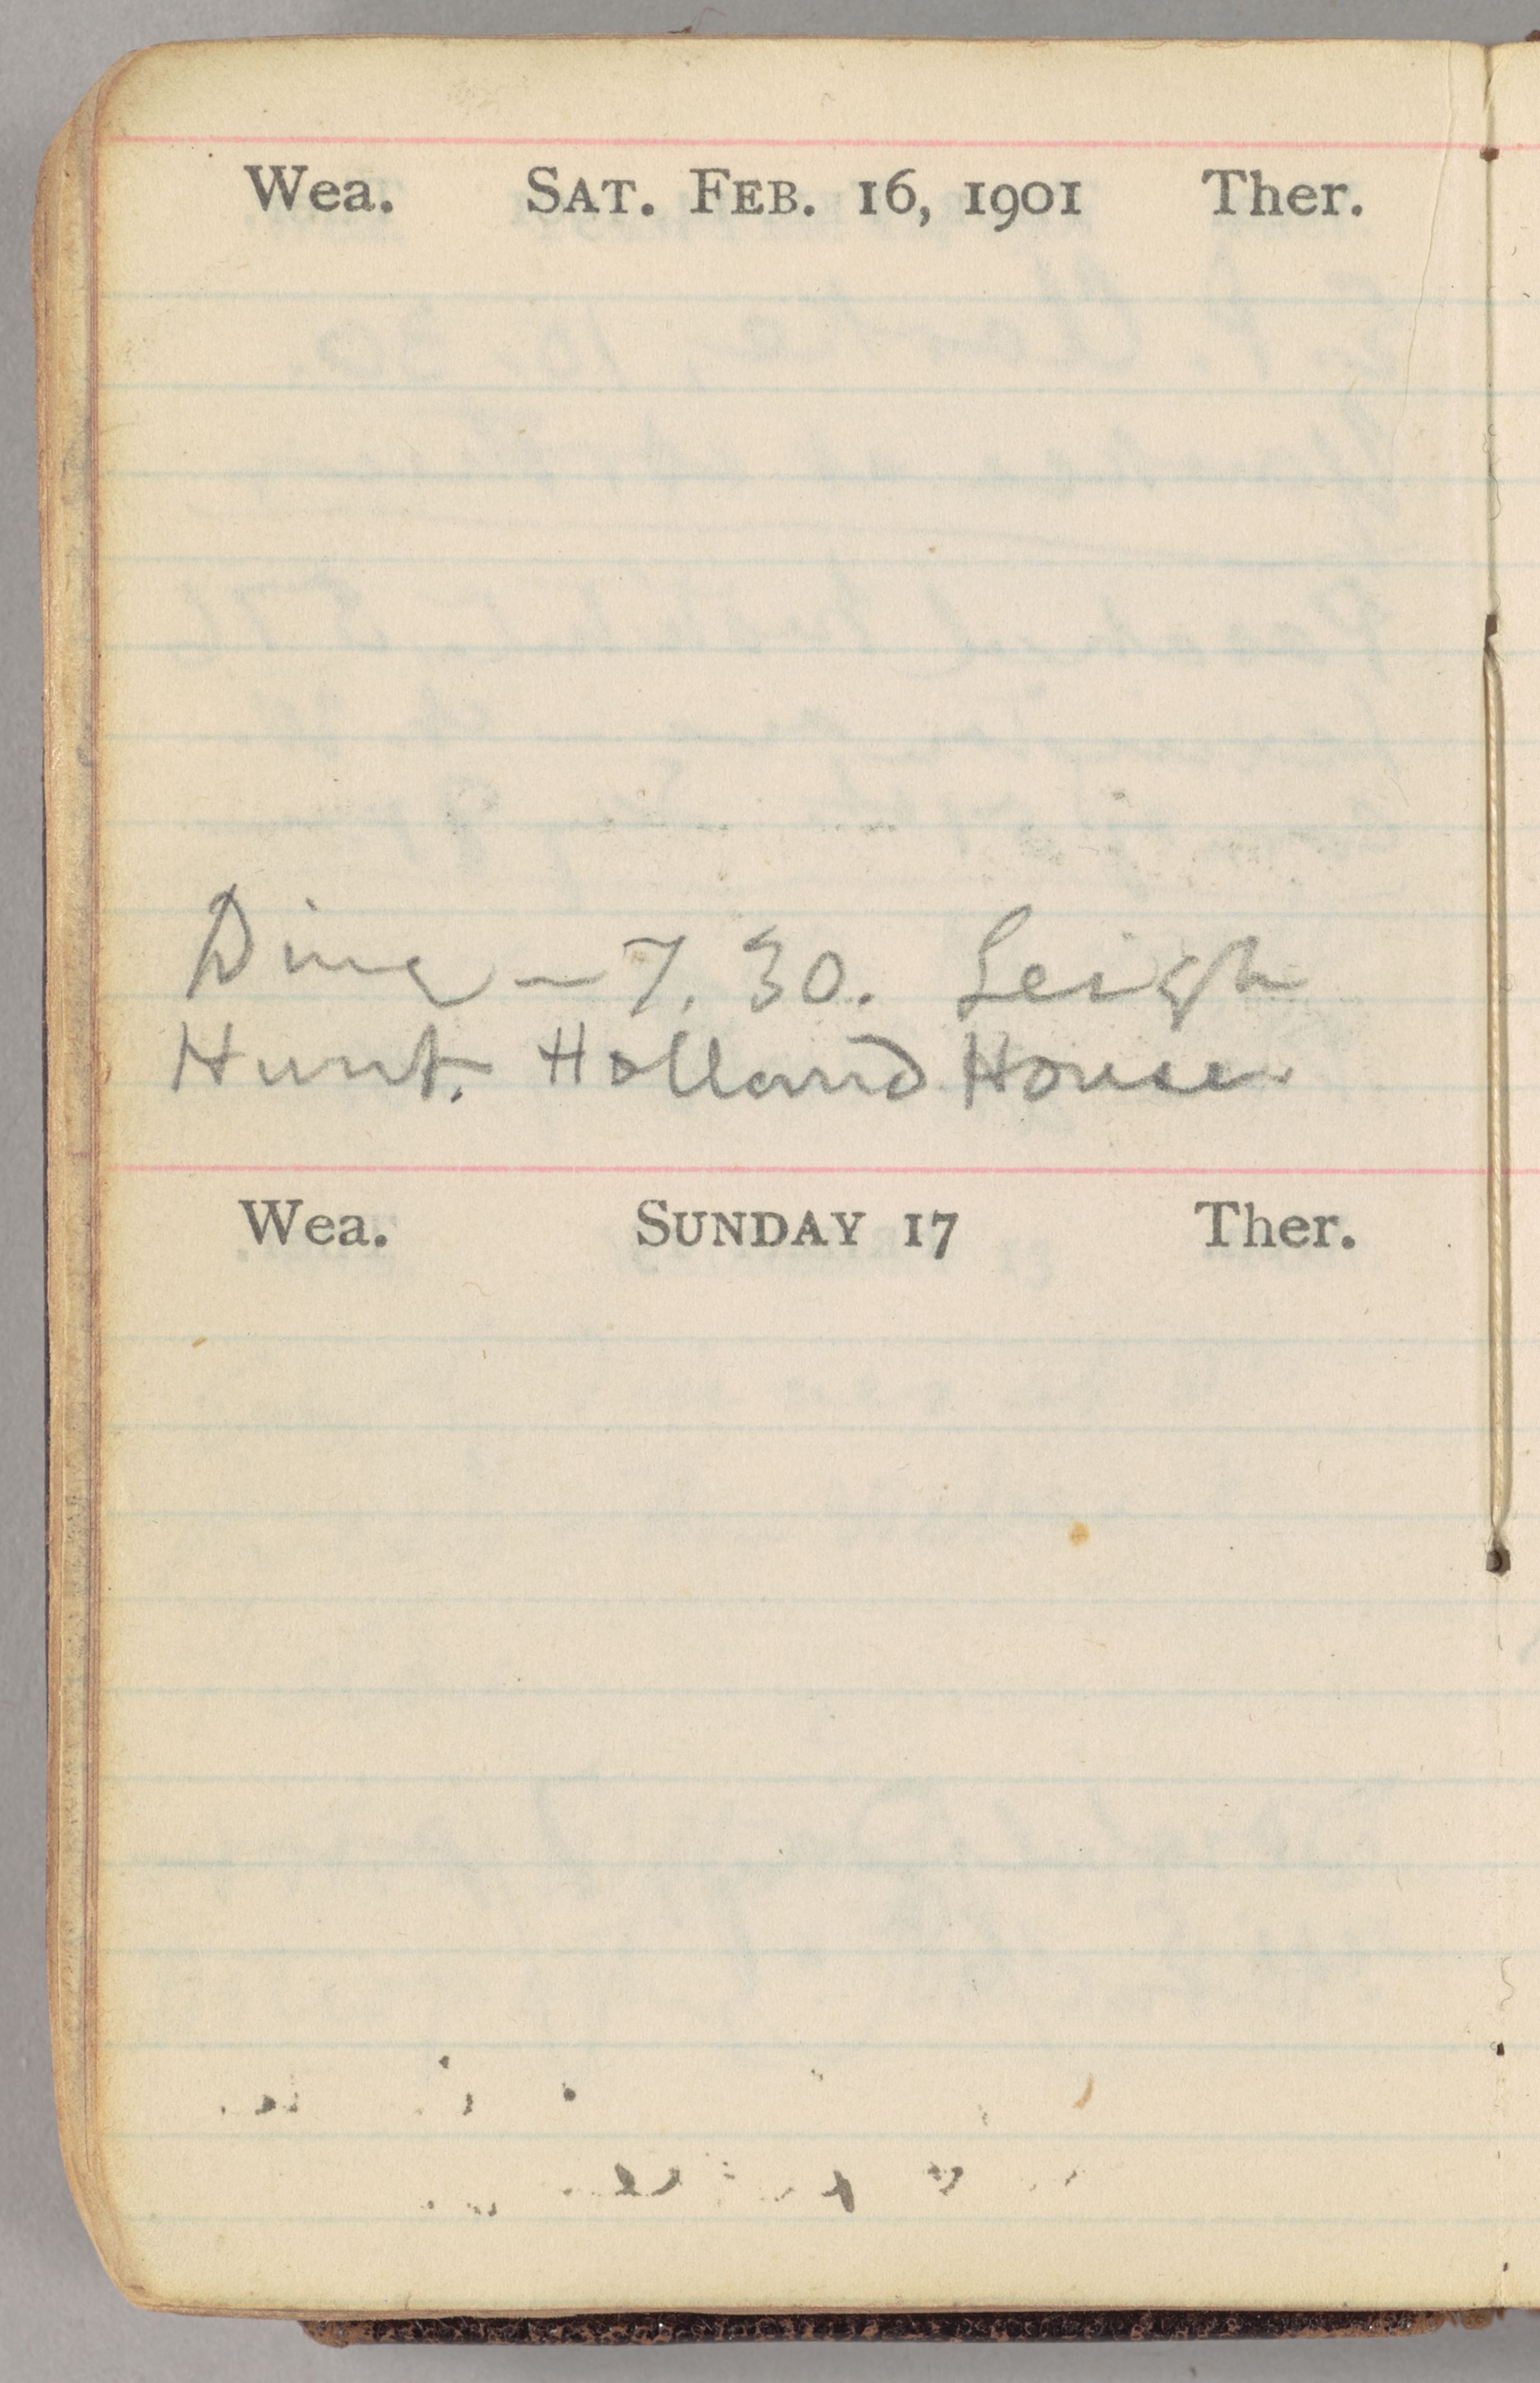 Wea. SAT. FEB. 16, 1901 Ther.
Dine - 7.30. Leigh
Hunt. Holland House.
Wea. SUNDAY 17 Ther.